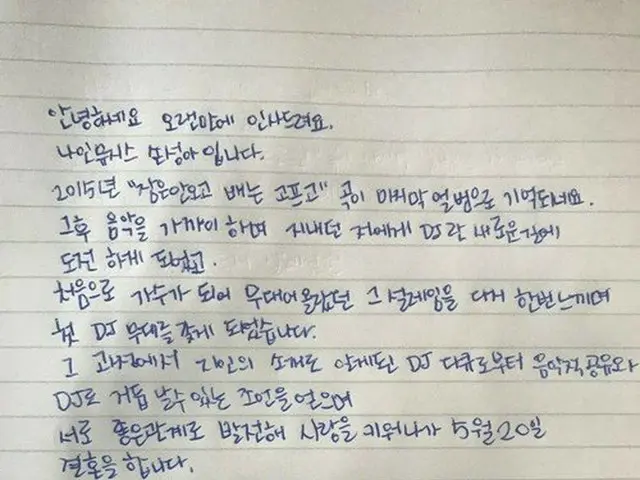 안녕하세요 오랜만에 인사드려요.
나인뮤지스 표성아 입니다.
2015년 "잠은안오고 배는 고프고" 곡이 마지막 앨범으로 기억되네요.
그후 음악을 가까이 하며 지내던 저에게 DJ란 새로운길에
도전 하게 되었고.
처음으로 가수가 되어 무대에올랐던 그 설레임을 다시 한번느끼며
첫 DJ 무대를 갖게 되었습니다.
그 과정에서 지인의 소개로 알게된 DJ 다큐로부터 음악적공유와
DJ로 거듭 날수 있는 조언을 얻으며
서로 좋은관계로 발전해 사랑을 키워나가 5월20일
결혼을 합니다.